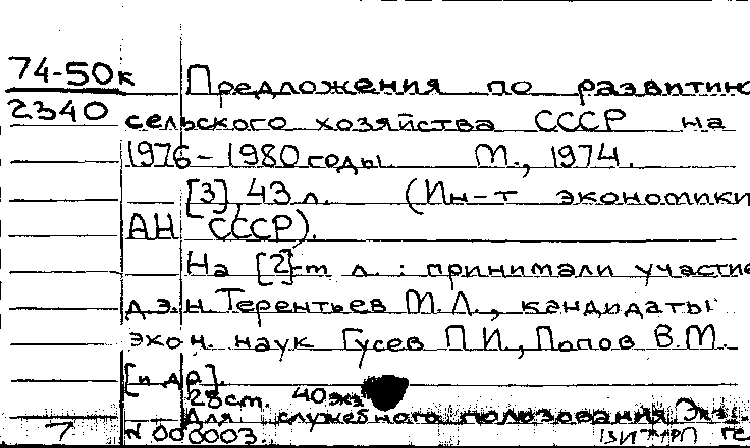 74-50к
2340
Предложения по развитию
сельского хозяйства СССР на
1976-1980 годы. М., 1974.
[3], 43 л. (Ин-т экономики
АН СССР).
На [2]-м л.: принимали участие
д.э.н. Терентьев М.Л., кандидаты
экон. наук Гусев П.И., Попов В.М.
[и др].
28 см. 40 экз
Для служебного пользования Экз.
7 N 000003.